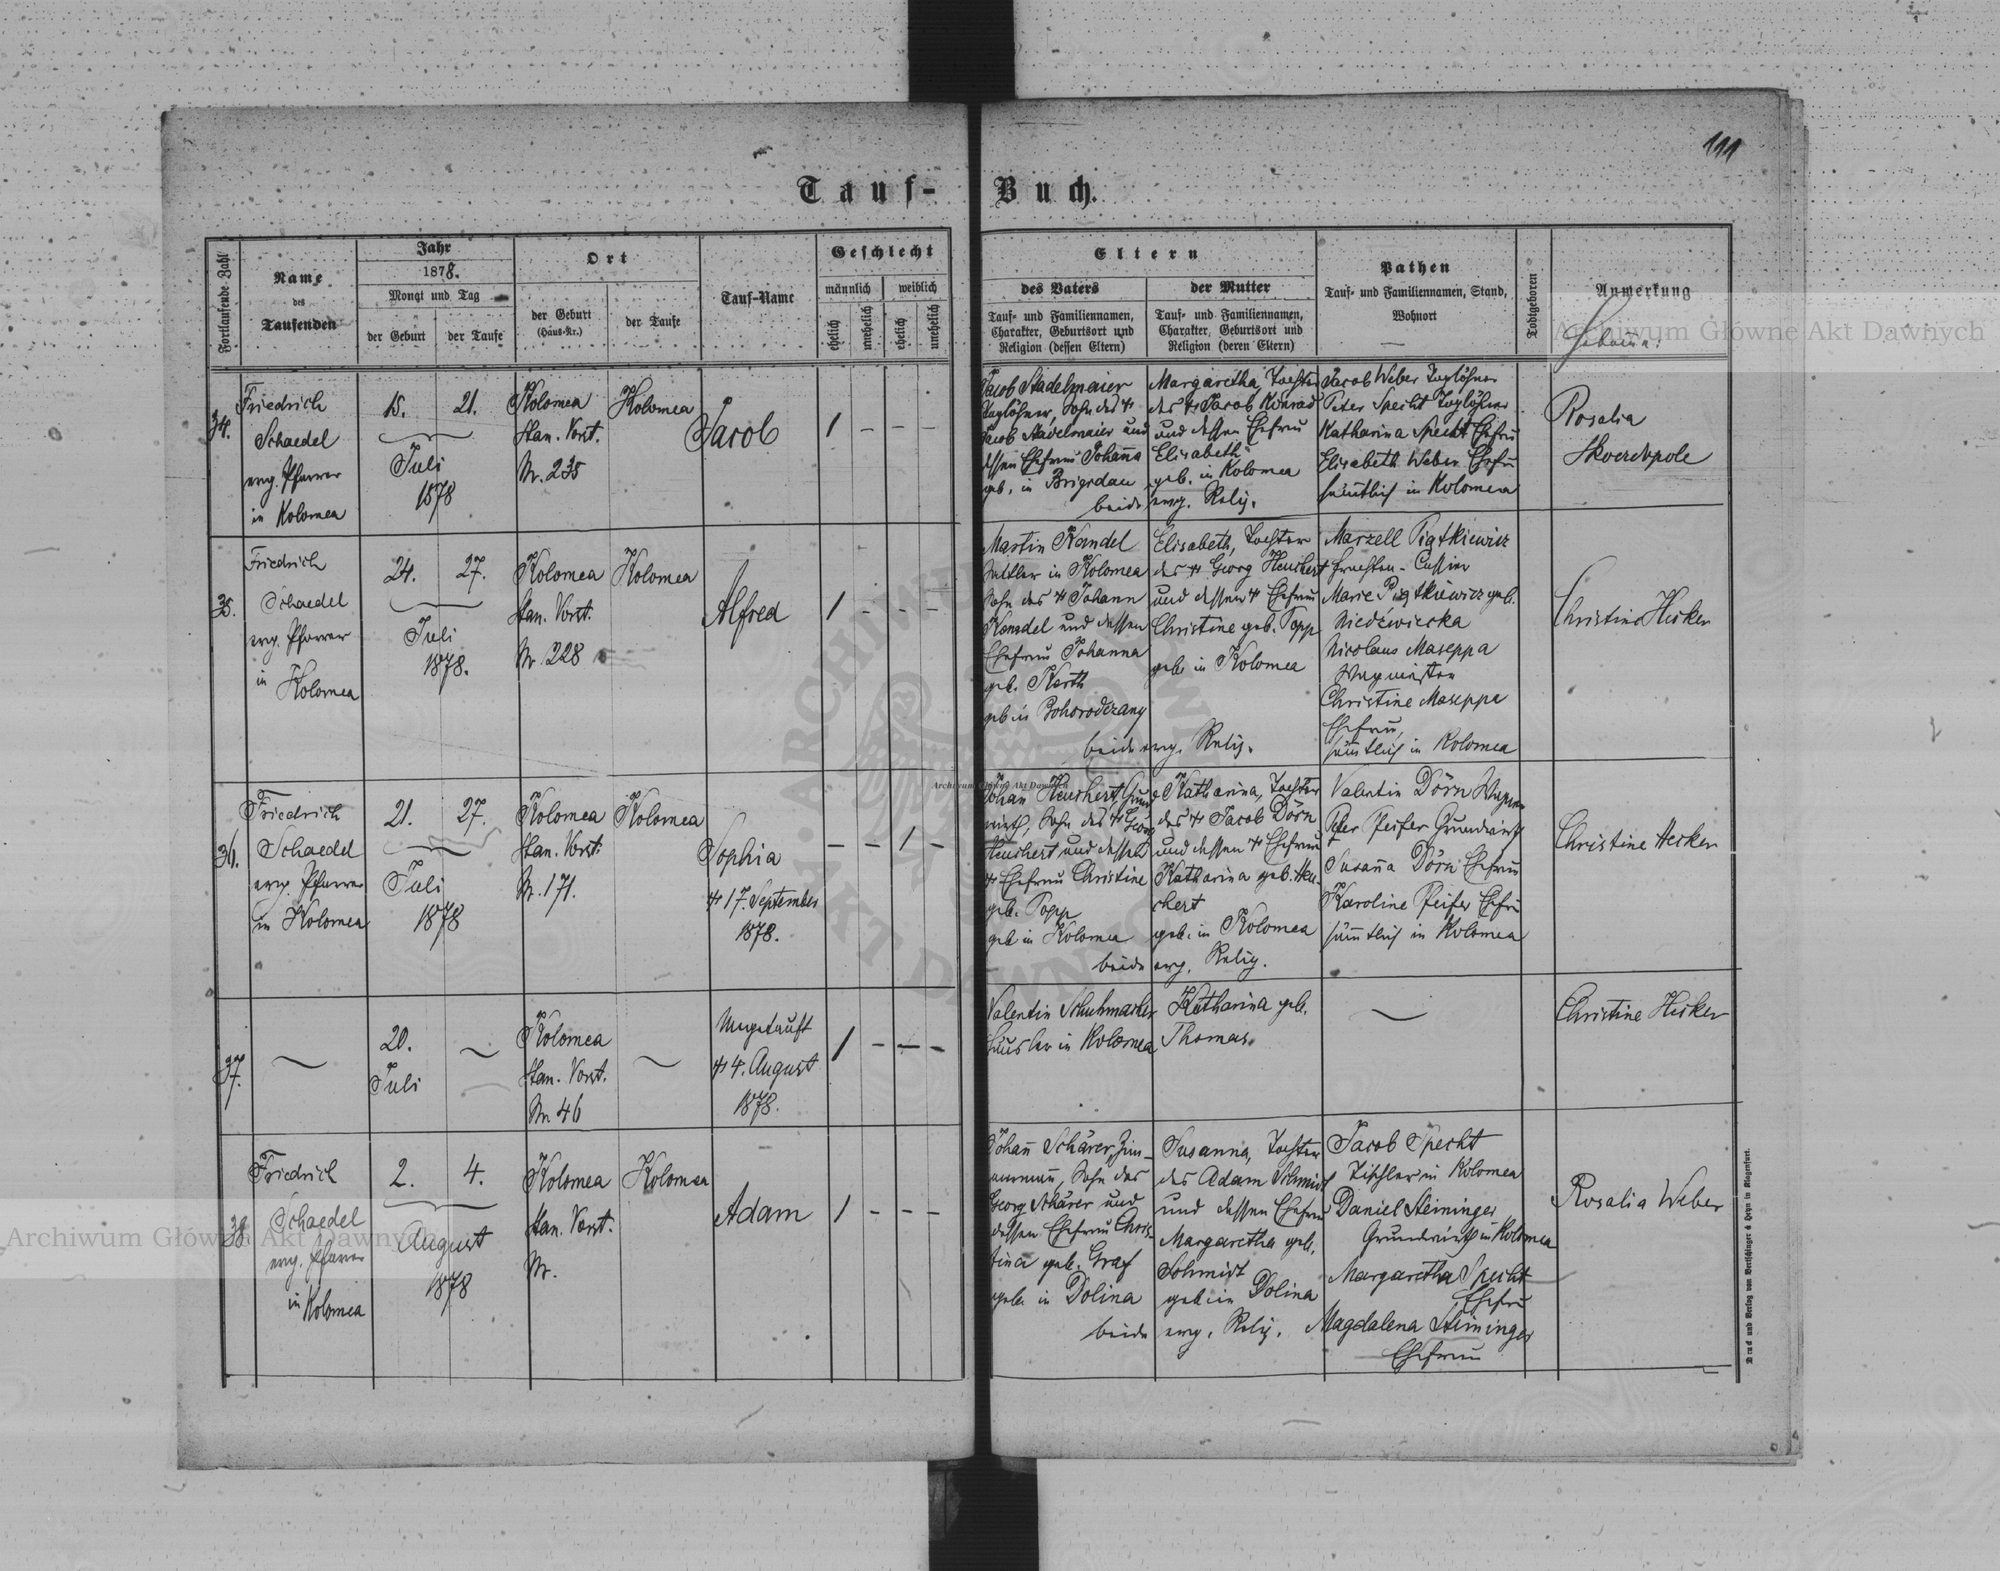 111
Tauf-Buch.
Fortlaufende Zahl
Name
des
Taufenden
Jahr
1878.
Monat und Tag
der Geburt
der Taufe
Ort
der Geburt
(Haus-Nr.)
der Taufe
Tauf-Name
Geschlecht
männlich
weiblich
ehelich
unehelich
ehelich
unehelich
Eltern
des Vaters
Tauf- und Familiennamen,
Charakter, Geburtsort und
Religion (dessen Eltern)
der Mutter
Tauf- und Familiennamen,
Charakter, Geburtsort und
Religion (deren Eltern)
Pathen
Tauf- und Familiennamen, Stand,
Wohnort
Todtgeboren
Anmerkung
Hebamme:
34.
Friedrich
Schaedel
evg. Pfarrer
in Kolomea
15.
21.
Juli
1878
Kolomea
Stan. Vorst.
Nr. 235
Kolomea
Jacob
1 – – –
Jacob Stadelmaier
Taglöhner, Sohn des +
Jacob Stadelmaier und
dessen Ehefrau Johanna
geb. in Brigidau
Margaretha, Tochter
des + Jacob Konrad
und dessen Ehefrau
Elisabeth
geb. in Kolomea
beide evg. Relig.
Jacob Weber Taglöhner
Peter Specht Taglöhner
Katharina Specht Ehefrau
Elisabeth Weber Ehefrau
sämtlich in Kolomea
Rosalia
Skweropole
35.
Friedrich
Schaedel
evg. Pfarrer
in Kolomea
24.
27.
Juli
1878.
Kolomea
Stan. Vorst.
Nr. 228
Kolomea
Alfred
1 – – –
Martin Kandel
Sattler in Kolomea
Sohn des + Johann
Kandel und dessen
Ehefrau Johanna
geb. Karth
geb in Bohorodczany
Elisabeth, Tochter
des + Georg Heuchert
und dessen + Ehefrau
Christine geb. Popp
geb. in Kolomea
beide evg. Relig.
Marzell Piątkiewicz
Cassier
Marie Piątkiewicz geb.
Niedźwiecka
Nicolaus Maseppa
Wagmeister
Christine Maseppa
Ehefrau,
sämtlich in Kolomea
Christine Hecker
36.
Friedrich
Schaedel
evg. Pfarrer
in Kolomea
21.
27.
Juli
1878
Kolomea
Stan. Vorst.
Nr. 171.
Kolomea
Sophia
+ 17. September
1878.
– – 1 –
Johan Heuchert, Grund-
wirth, Sohn des + Georg
Heuchert und dessen
+ Ehefrau Christine
geb. Popp
geb in Kolomea
Katharina, Tochter
des + Jacob Dörn
und dessen + Ehefrau
Katharina geb. Heu-
chert
geb. in Kolomea
beide evg. Relig.
Valentin Dörn Wagner
Peter Pfeifer Grundwirth
Susanna Dörn Ehefrau
Karoline Pfeifer Ehefrau
sämtlich in Kolomea
Christine Hecker
37.
20.
Juli
Kolomea
Stan. Vorst.
Nr. 46
Ungetauft
+ 4. August
1878.
1 – – –
Valentin Schuhmacher
Häusler in Kolomea
Katharina geb.
Thomas.
Christine Hecker
38.
Friedrich
Schaedel
evg. Pfarrer
in Kolomea
2.
4.
August
1878
Kolomea
Stan. Vorst.
Nr.
Kolomea
Adam
1 – – –
Johann Schärer, Zim-
mermann, Sohn des
Georg Schärer und
dessen Ehefrau Chris-
tina geb. Graf
geb. in Dolina
Susanna, Tochter
des Adam Schmidt
und dessen Ehefrau
Margaretha geb.
Schmidt
geb. in Dolina
beide evg. Relig.
Jacob Specht
Tischler in Kolomea
Daniel Steininger
Grundwirth in Kolomea
Margaretha Specht
Ehefrau
Magdalena Steininger
Ehefrau
Rosalia Weber
Druck und Verlag von Bertschinger & Heyn in Klagenfurt.
Archiwum Główne Akt Dawnych
Archiwum Główne Akt Dawnych
Archiwum Główne Akt Dawnych